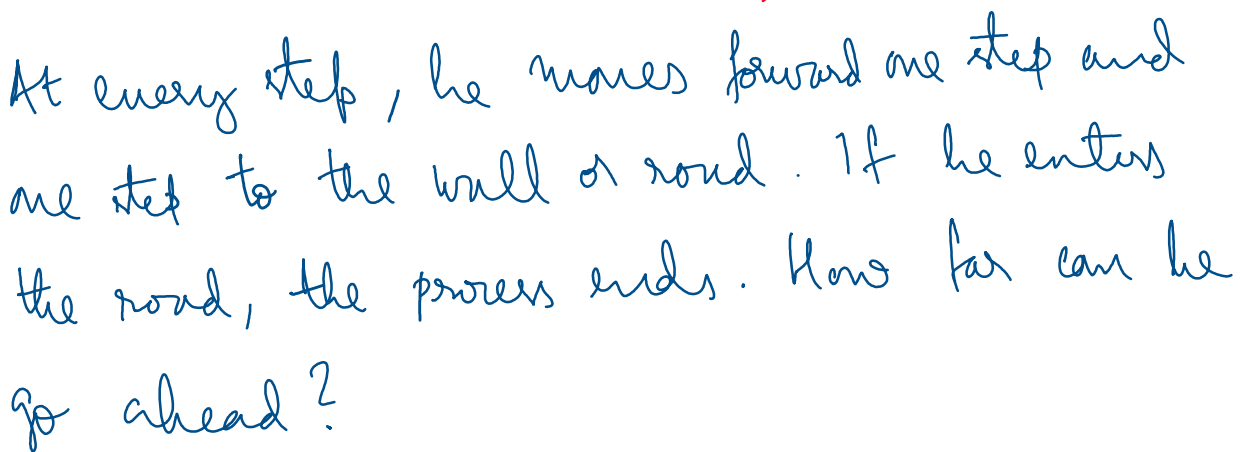 At every step, he moves forward one step and
one step to the wall or road. If he enters
the road, the process ends. How far can he
go ahead?